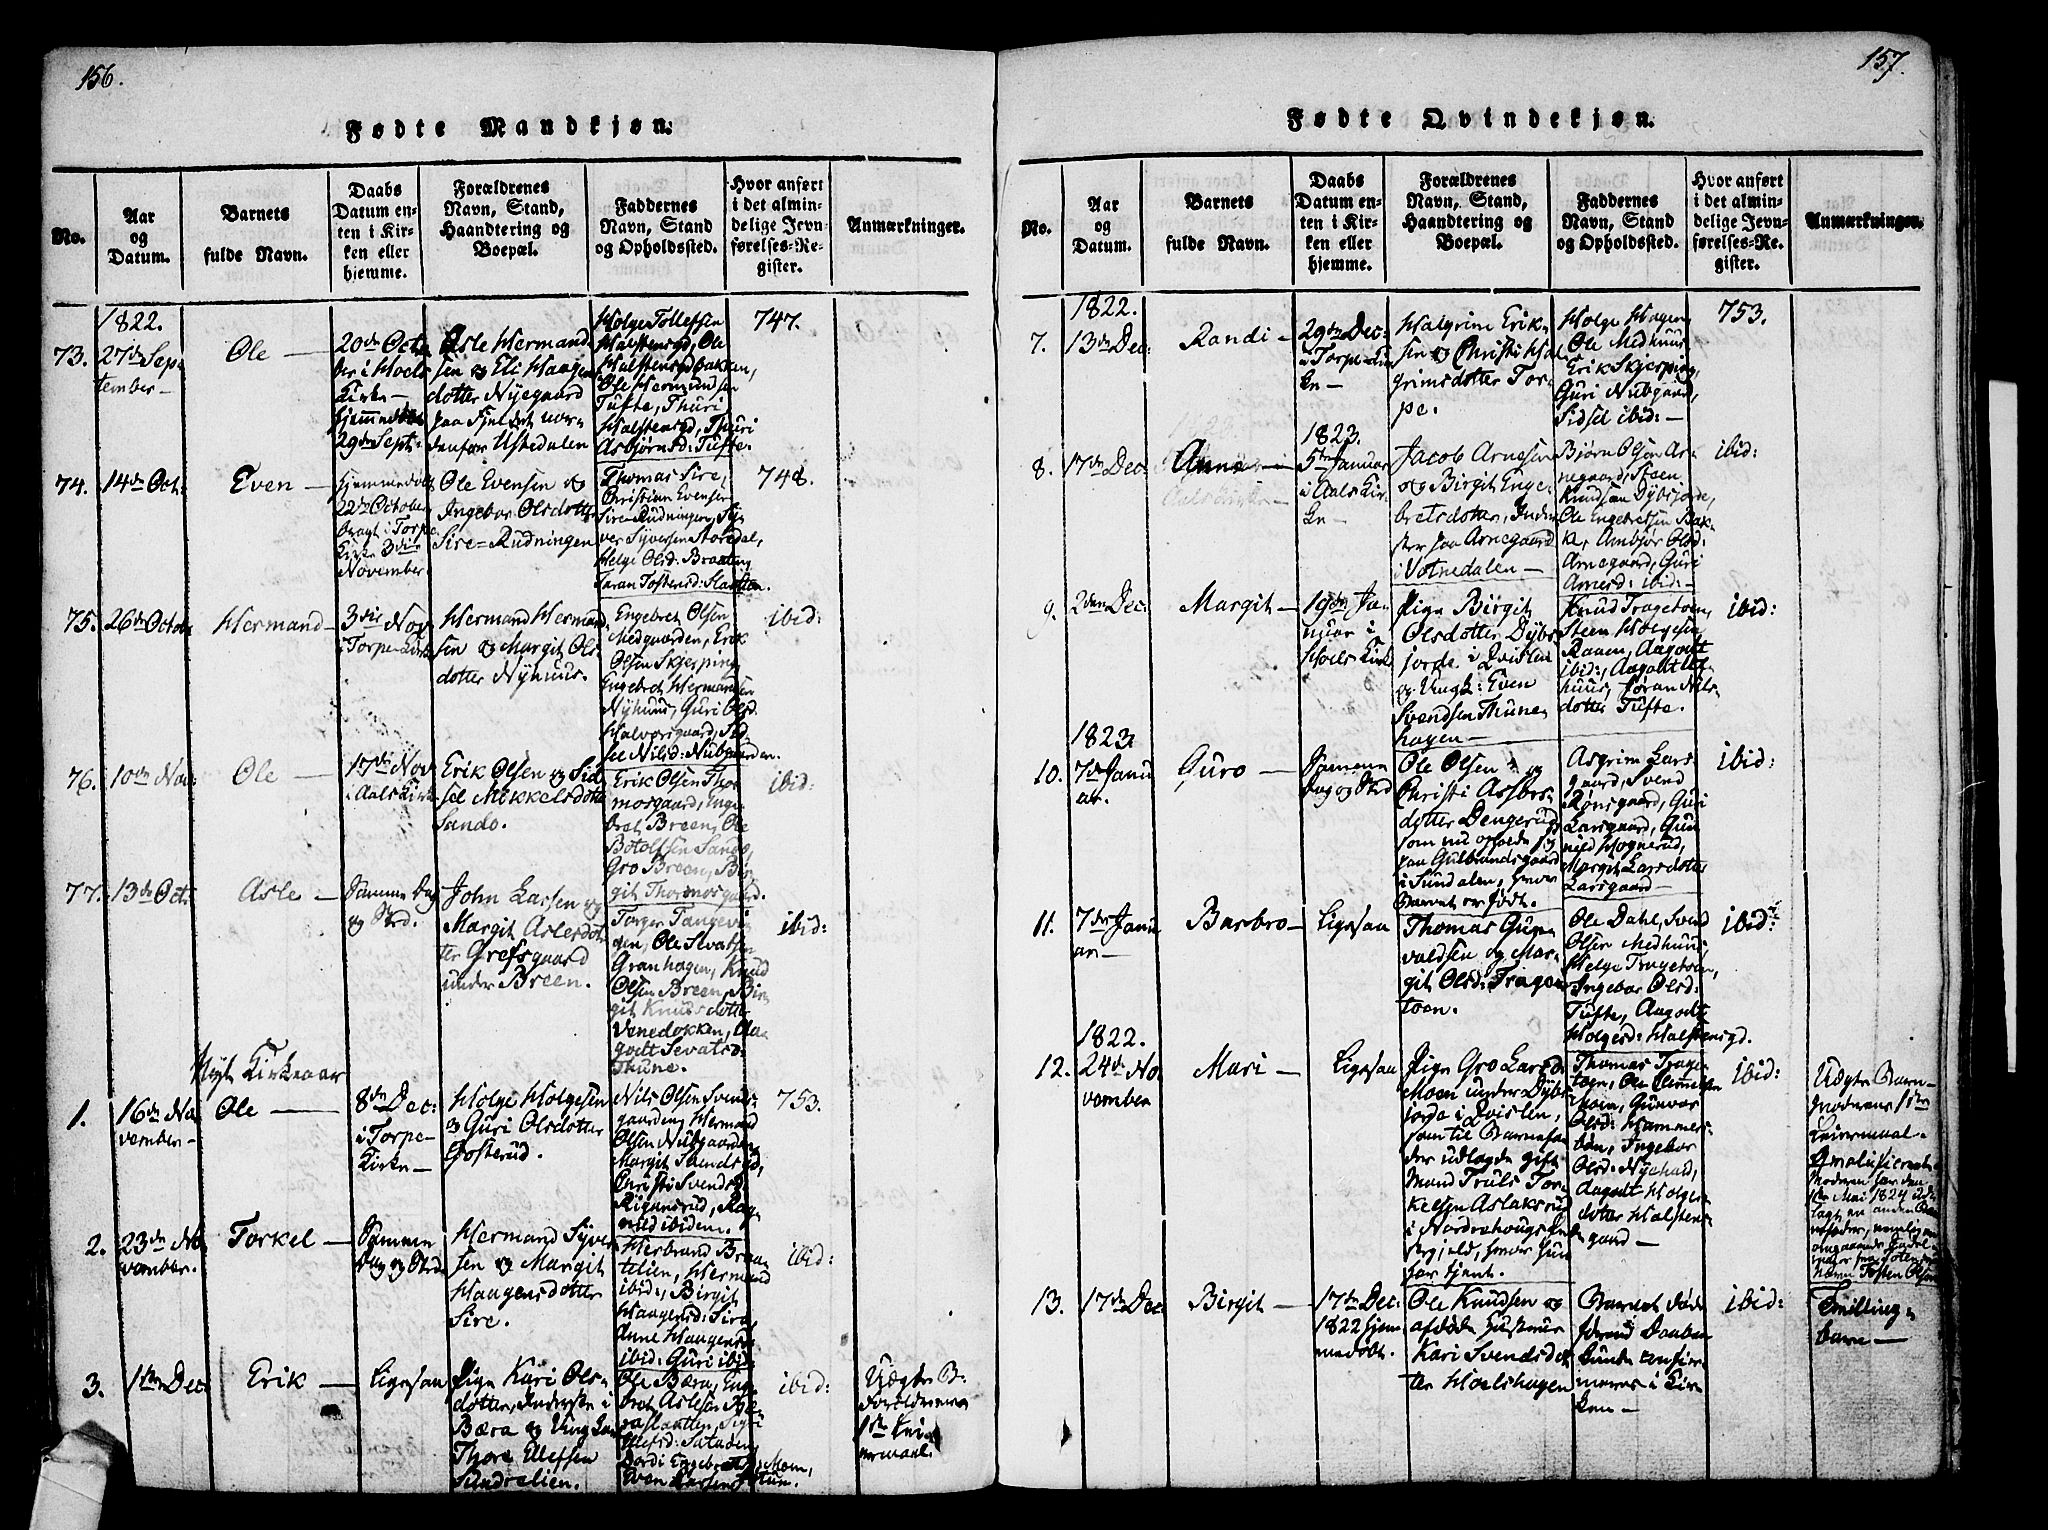 156.
Fødte Mandkjøn.
No.
Aar
og
Datum.
Barnets
fulde Navn.
Daabs
Datum en-
ten i Kir-
ken eller
hjemme.
Forældrenes
Navn, Stand,
Haandtering og
Boepæl.
Faddernes
Navn, Stand
og Opholdssted.
Hvor anført
i det almin-
delige Jevn-
førelses-Re-
gister.
Anmærkninger.
1822.
73.
27de Sep-
tember-
Ole
20de Octo
ber i Hoels
Kirke-
hjemmedøbt
29de Sept:
Asle Hermand
sen og Eli Haagens
dotter Nyegaard
paa Fjeldet nor-
denfor Ustedalen
Holge Tollefsen
Halstensgd, Ole
Halstensgdbakken,
Ole Hermundsen
Tufte, Thuri
Halstensgd, Thuri
Asbjørnsd: Tufte.
747.
74.
14de Oct:
Even
hjemmedøbt
22de October
bragt i Torpe
Kirke 3die
November.
Ole Evensen og
Ingebor Olsdotter
Sire=Rudningen
Thomas Sire,
Christian Evensen
Sire-Rudningen, Sy-
ver Syversen Storedal,
Helge Olsd: Braaten,
Taran Tostensd: Slaatten.
748.
75.
26de Octob.
Hermand
3die Nov
i Torpe-Kirke
Hermand Hermand
sen og Margit Ols-
dotter Nyhuus.
Engebret Olsen
Medgaarden, Erik
Olsen Skjerping
Engebret Hermandsen
Nyhuus, Guri Olsd.
Halvorsgaard, Sid-
sel Nilsd: Nubgaarden.
ibid:
76.
10de Nov:
Ole
17de Nov
i Aals Kirke
Erik Olsen og Sid
sel Mekkelsdotter
Sando.
Erik Olsen Thor
mosgaard, Enge-
bret Breen, Ole
Botolfsen Sando,
Gro Breen, Bir-
git Thormosgaard.
ibid:
77.
13de Oct.
Asle
Samme Dag
og Sted.
John Larsen og
Margit Aslesdot
ter Grefsgaard
under Breen.
Torger Tangevi
gen, Ole Sevatsen
Granhagen, Knud
Olsen Breen, Bir
git Knudsdotter
Venedokken, Aa-
godt Sevatsd:
Thune.
ibid:
Nyt Kirkeaar
1.
16de No
vember-
Ole
8de Dec:
i Torpe-
Kirke-
Holge Holgesen
og Guri Olsdotter
Gosterud.
Nils Olsen Svens-
gaarden, Hermand
Olsen Nubgaarden
Margit Svendsgd,
Christi Svendsgd
Rigunsrud, Rag-
nild ibidem.
753.
2.
23de No
vember.
Torkel
Samme
Dag og Sted
Hermand Syver
sen og Margit
Haagensdotter
Sire.
Herbrand Braa-
telien, Hermand
ibid:, Birgit
Haagensd: Sire,
Anne Haagensd:
ibid: Guri ibid:
ibid:
3.
1ste Dec:
Erik
Ligesaa
Pige Kari Ols-
dotter, Inderste i
Bæra og Ungkarl
Thore Ellefsen
Sundrelien.
Ole Bæra, Enge
bret Aslesen
slaatten, Sigri
Ellefsd:
Jordi Moen,
Even
ibid:
Uægte B.
Forældrenes
1ste Lei
ermaal.
157.
Fødte Qvindekjøn.
No.
Aar
og
Datum.
Barnets
fulde Navn.
Daabs
Datum en-
ten i Kir-
ken eller
hjemme.
Forældrenes
Navn, Stand,
Haandtering og
Boepæl.
Faddernes
Navn, Stand
og Opholdssted.
Hvor anført
i det almin-
delige Jevn-
førelses-Re-
gister.
Anmærkninger.
1822.
7.
13de Dec:
Randi
29de Dec:
i Torpe-Kir
ke-
Halgrim Erik-
sen og Christi Hal-
grimsdotter Tor-
pe.
Holge Hagen,
Ole Medhuus
Erik Skjerping,
Guri Nubgaard,
Sidsel ibid:
753.
8.
17de Dec.
Anne
1823.
5te Januar
i Aals Kir
ke-
Jacob Arnesen
og Birgit Enge-
bretsdotter, Inder-
ster paa Arnegaard
i Votnedalen
Bjørn Olsen Ar-
negaard, Steen
Knudsen Dybsjorde,
Ole Engebretsen Bak-
ke, Ambjør Olsd:
Arnegaard, Guri
Arnesd: ibid:
ibid:
9.
2den Dec:
Margit
19de Ja-
nuar i
Hoels Kirke
Pige Birgit
Olsdotter Dybs-
jorde i Qvislen
og Ungk: Even
Svendsen Thune-
hagen
Knud Trageton,
Steen Holgesen
Raaen, Aagodt
ibid:, Aagodt
huus, Jøran Nils-
dotter Tufte.
ibid:
1823.
10.
7de Janu
ar.
Guro
Samme
Dag og Sted
Ole Olsen og
Christi Assbors-
dotter Dengerud
som nu opholde sig
paa Gulbrandsgaard
i Sundalen, hvor
Barnet er født.
Asgrim Lars-
gaard, Svend
Rønsgaard, Guri
Larsgaard, Gun
nild Hognerud,
Margit Larsdotter
Larsgaard
ibid:
11.
7de Janu
ar-
Barbro
Ligesaa
Thomas Gun-
valdsen og Mar-
git Olsd: Trage-
toen.
Ole Dahl, Svend
Olsen Medhuus
Helge Tragetoen,
Ingebor Olsd:
Tufte, Aagodt
Holgesd: Halstensgd.
ibid:
1822.
12.
24de No
vember
Mari
Ligesaa
Pige Gro Larsd:
Moen under Dybs
jorde i Qvislen,
som til Barnefa-
der udlagde gift
Mand Truls Tor-
kelsen Aslaksrud
i Nordrehougs Præ
stegjeld, hvor hun
har tjent.
Thomas Trage-
toen, Ole
Moen, Gunvor
Olsd: Hammers-
bøn, Ingebor
Olsd: Nyehuus,
Aagodt Holges-
dotter Halstens-
gaard
ibid:
Uægte Barn
Moderens 1ste
Leiermaal.
Moderen har den
1ste Mai 1824 ud-
lagt en anden Bar
nefader, nemlig en
omgaaende
mager fra Toten ved
Navn Tosten Olsen
13.
17de Dec
Birgit
17de Dec:
1822 hjem
medøbt.
Ole Knudsen og
afdøde Hustrue
Kari Svendsdot
ter Hoelshagen
Barnet døde
førend Daaben
kunde confir-
meres i Kir-
ken
ibid:
Tvilling-
barn